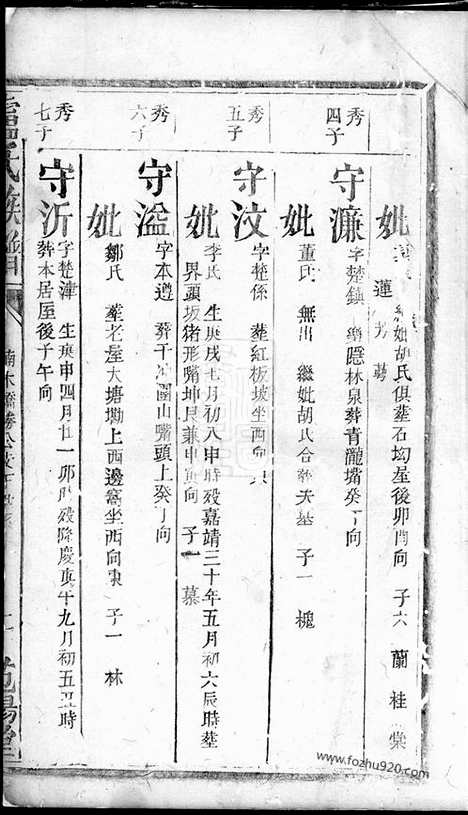 妣 蓮 芳 繼妣胡氏俱葬石均屋後卯酉向 子六 蘭 桂 棠
秀四子
守濂 字楚鎮 樂隱林泉葬青瀧嘴癸丁向
妣 董氏 無出 繼妣胡氏合葬夫墓 子一 槐
秀五子
守汶 字楚係 葬紅板坡坐西向東
妣 李氏 生庚戌七月初八申時歿嘉靖三十年五月初六辰時葬
界頭坂猪形嘴坤艮兼申寅向 子一 慕
秀六子
守溢 字本遵 葬千冲團山嘴頭上癸丁向
妣 鄒氏 葬老屋大塘墈上西邊窩坐西向東 子一 林
秀七子
守沂 字楚津 生庚申四月廿一卯時歿隆慶庚午九月初五丑時
葬本居屋後子午向
盧氏族譜
范陽堂
www.fozhu920.com